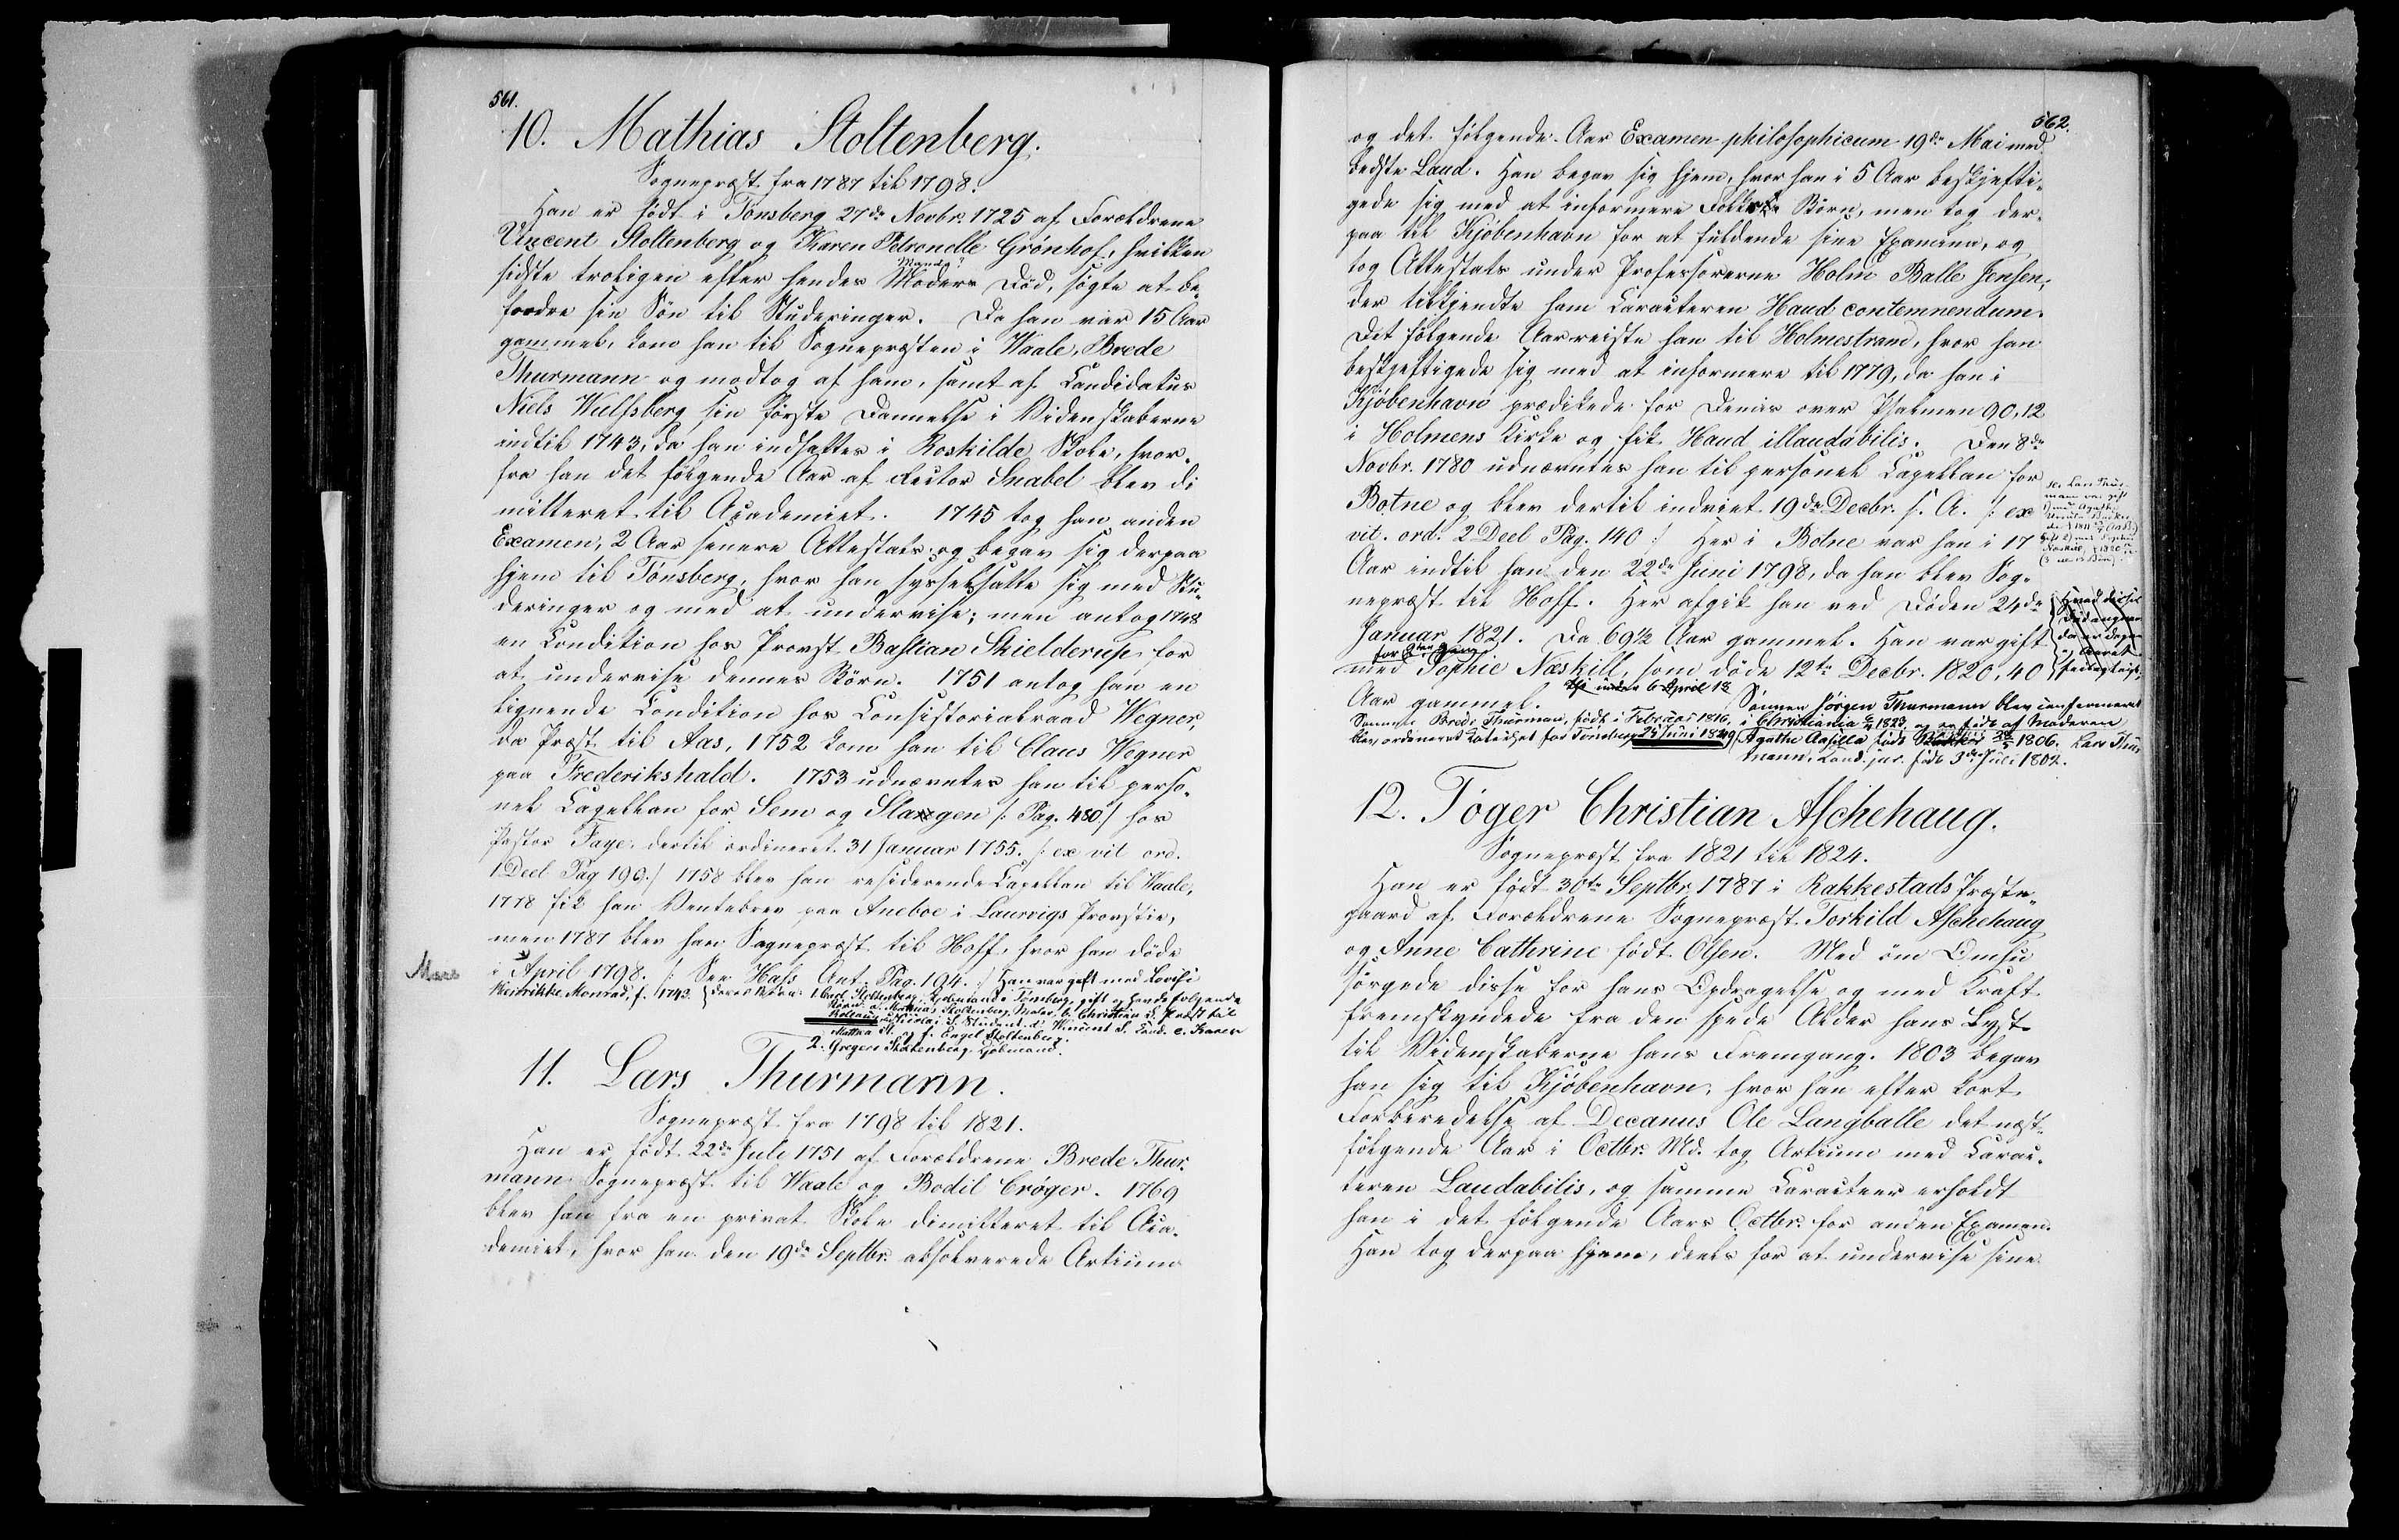 561.
10. Mathias Stoltenberg.
Sognepræst fra 1787 til 1798.
Han er født i Tønsberg 27de Novbr. 1725 af Forældrene
Vincent Stoltenberg og Karen Petronelle Grønhof, hvilken
Mands?
sidste troligen efter hendes Moders Død, søgte at be-
fordre sin Søn til Studeringer. Da han var 15 Aar
gammel, kom han til Sognepræsten i Waale, Brede
Thurmann og modtog af ham, samt af Candidatus
Niels Wulfsberg, sin første Dannelse i Videnskaberne
indtil 1743, da han indsattes i Roskilde Skole, hvor-
fra han det følgende Aar af Rector Snabel blev di
mitteret til Academiet. 1745 tog han anden
Examen, 2 Aar senere Attestats; og begav sig derpaa
hjem til Tønsberg, hvor han sysselsatte sig med Stu-
deringer og med at undervise; men antog 1748
en Condition hos Provst Bastian Skielderup for
at undervise dennes Børn. 1751 antog han en
lignende Condition hos Consistorialraad Wegner,
da Præst til Aas, 1752 kom han til Claus Wegner
paa Frederikshald. 1753 udnævntes han til perso-
nel Capellan for Sem og Slangen /: Pag. 480 :/ hos
Pastor Faye, dertil ordineret 31 Januar 1755. /: ex vit ord.
1 Deel Pag 190. :/ 1758 blev han residerende Capellan til Waale,
1778 fik han Ventebrev paa Aneboe i Laurvigs Provstie,
men 1787 blev han Sognepræst til Hoff, hvor han døde
Mars
i April 1798. /: See Hafs Ant: Pag. 194. :/ Han var gift med Lovise
Henrikke Monrad, f. 1743. deres Børn: 1. Carl Stoltenberg, Kjøbmand i Tønsberg, gift og havde følgende
Børn: a. Mathias Stoltenberg, Maler, b. Christian S. Præst til
Nicolai S. Student d. Vincent S. Cand. e. Karen
Mathea St. og f. Engel Stoltenberg.
2. Gregers Stoltenberg, Kjøbmand.
11. Lars Thurmann.
Sognepræst fra 1798 til 1821.
Han er født 22de Juli 1751 af Forældrene Brede Thur-
mann Sognepræst til Waale og Bodil Crøger. 1769
blev han fra en privat Skole dimitteret til Aca-
demiet, hvor han den 19de Septbr. absolverede Artium
562.
og det følgende Aar Examen philosophicum 19de Mai med
bedste Laud. Han begav sig hjem, hvor han i 5 Aar beskjefti-
gede sig med at informere Folks Børn, men tog der-
paa til Kjøbenhavn for at fuldende sine Examina, og
tog Attestats under Professorerne Holm Balle Jensen,
der tilkjendte ham Caracteren Haud contemnendum.
Det følgende Aar reiste han til Holmestrand, hvor han
beskjeftigede sig med at informere til 1779, da han i
Kjøbenhavn prædikede for Demis over Psalmen 90,12
i Holmens Kirke og fik Haud illaudabilis. Den 8de
Novbr. 1780 udnævntes han til personel Capellan for
Botne og blev dertil indviet 19de Decbr. s. A. /: ex
vit. ord. 2 Deel Pag. 140 :/ Her i Botne var han i 17
Aar indtil han den 22de Juni 1798, da han blev Sog-
nepræst til Hoff. Her afgik han ved Døden 24de
Januar 1821. Da 69½ Aar gammel. Han var gift
for 2den Gang
med Sophie Neskill, som døde 12te Decbr. 1820, 40
Aar gammel.
Sønnen Brede Thurman, født i Februar 1816,
blev ordineret Catechet for Tønsberg 24 Juni 1849
Sønnen Jørgen Thurmann blev confirmeret
i Christiania 1823, og er født af Moderen
Agathe født 1806. Lars Thur
mann, Cand. jur. født 3die Juli 1802.
12. Tøger Christian Aschehaug.
Sognepræst fra 1821 til 1824.
Han er født 30te Septbr. 1787 i Rakkestads Præste-
gaard af Forældrene Sognepræst Torkild Aschehaug
og Anne Cathrine født Olsen. Med øm Omsu
sørgede disse for hans Opdragelse og med Kraft
fremskyndede fra den spede Alder hans Lyst
til Videnskaberne hans Fremgang. 1803 begav
han sig til Kjøbenhavn, hvor han efter kort
Forberedelse af Decanus Ole Langballe det næst-
følgende Aar i Octbr. Md. tog Artium med Carac-
teren Laudabilis, og samme Caracteer erholdt
han i det følgende Aars Octbr. for anden Examen.
Han tog derpaa hjem, deels for at undervise sine